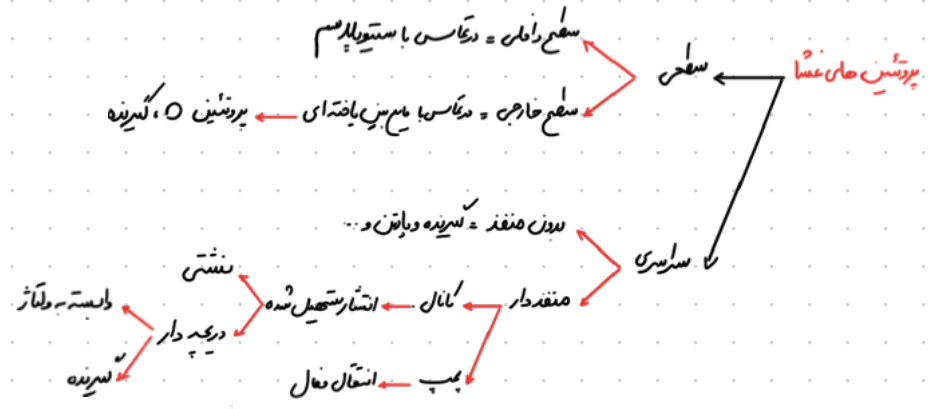 پروتئین های غشا
سطحی
سطح داخلی = درتماس با سیتوپلاسم
سطح خارجی = درتماس با مایع بین یاخته ای
پروتئین O ، گیرنده
سراسری
بدون منفذ = گیرنده و پادتن و ...
منفذ دار
کانال
انتشار تسهیل شده
نشتی
دریچه دار
وابسته به ولتاژ
گیرنده
پمپ
انتقال فعال